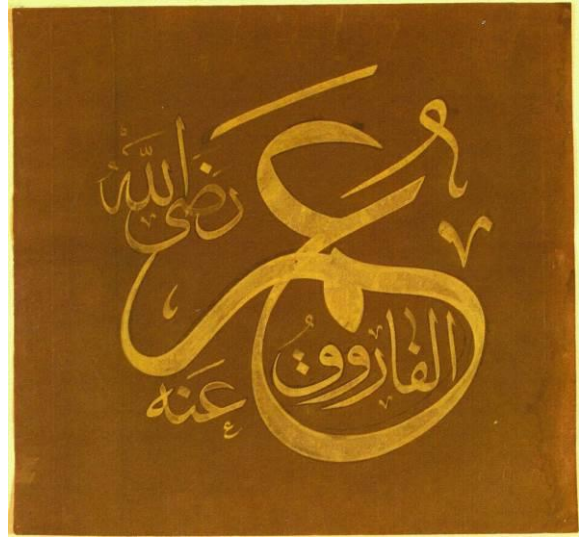 عُمَرُ
الفاروقُ
رَضِىَ اللّٰهُ
عَنه